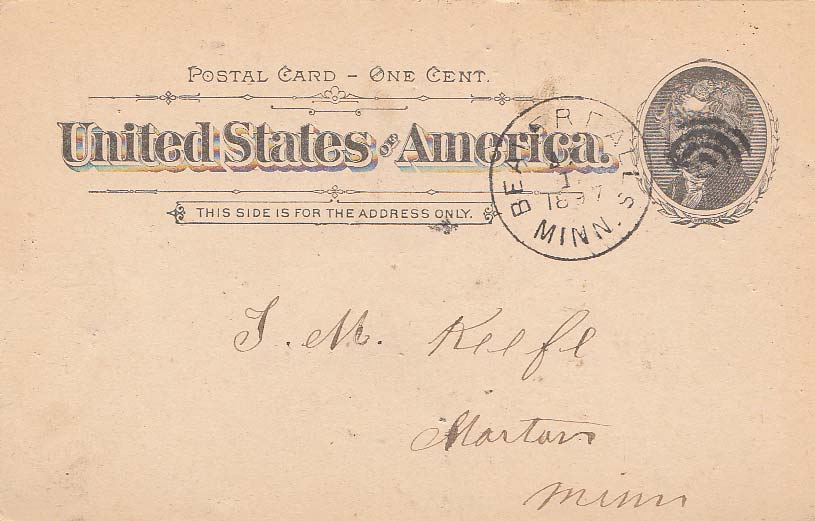 POSTAL CARD - ONE CENT.
United States of America.
THIS SIDE IS FOR THE ADDRESS ONLY.
BEAVER FALLS
1897
MINN.
J. M. Keefe
Morton
Minn